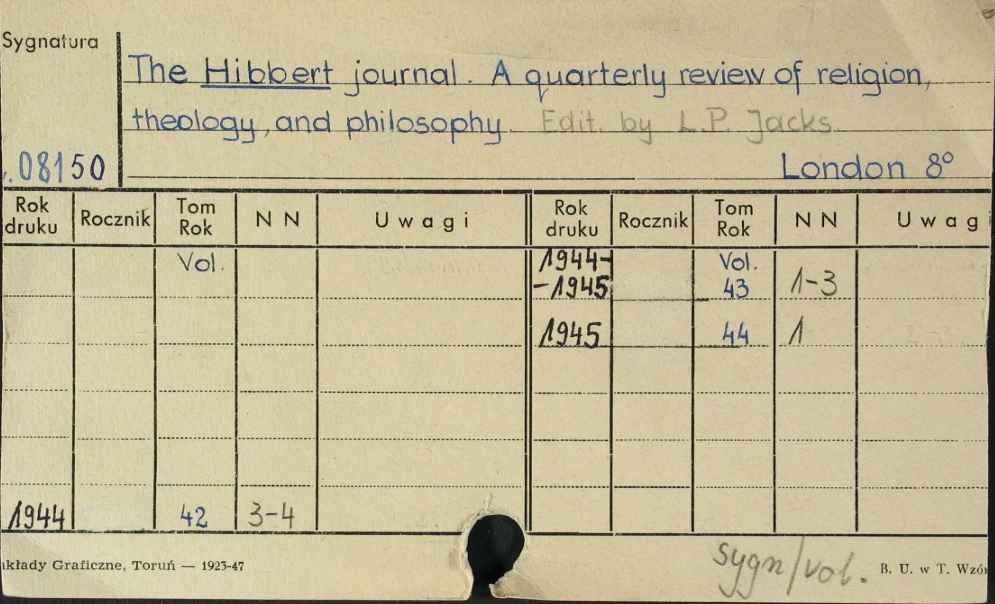 Sygnatura
The Hibbert journal. A quarterly review of religion,
theology, and philosophy. Edit. by L.P. Jacks.
08150
London 8°
Rok druku Rocznik Tom Rok N N Uwagi Rok druku Rocznik Tom Rok N N Uwag
Vol. 1944- Vol.
-1945 43 1-3
1945 44 1
1944 42 3-4
sygn/vol.
kłady Graficzne, Toruń — 1923-47 B. U. w T. Wzó